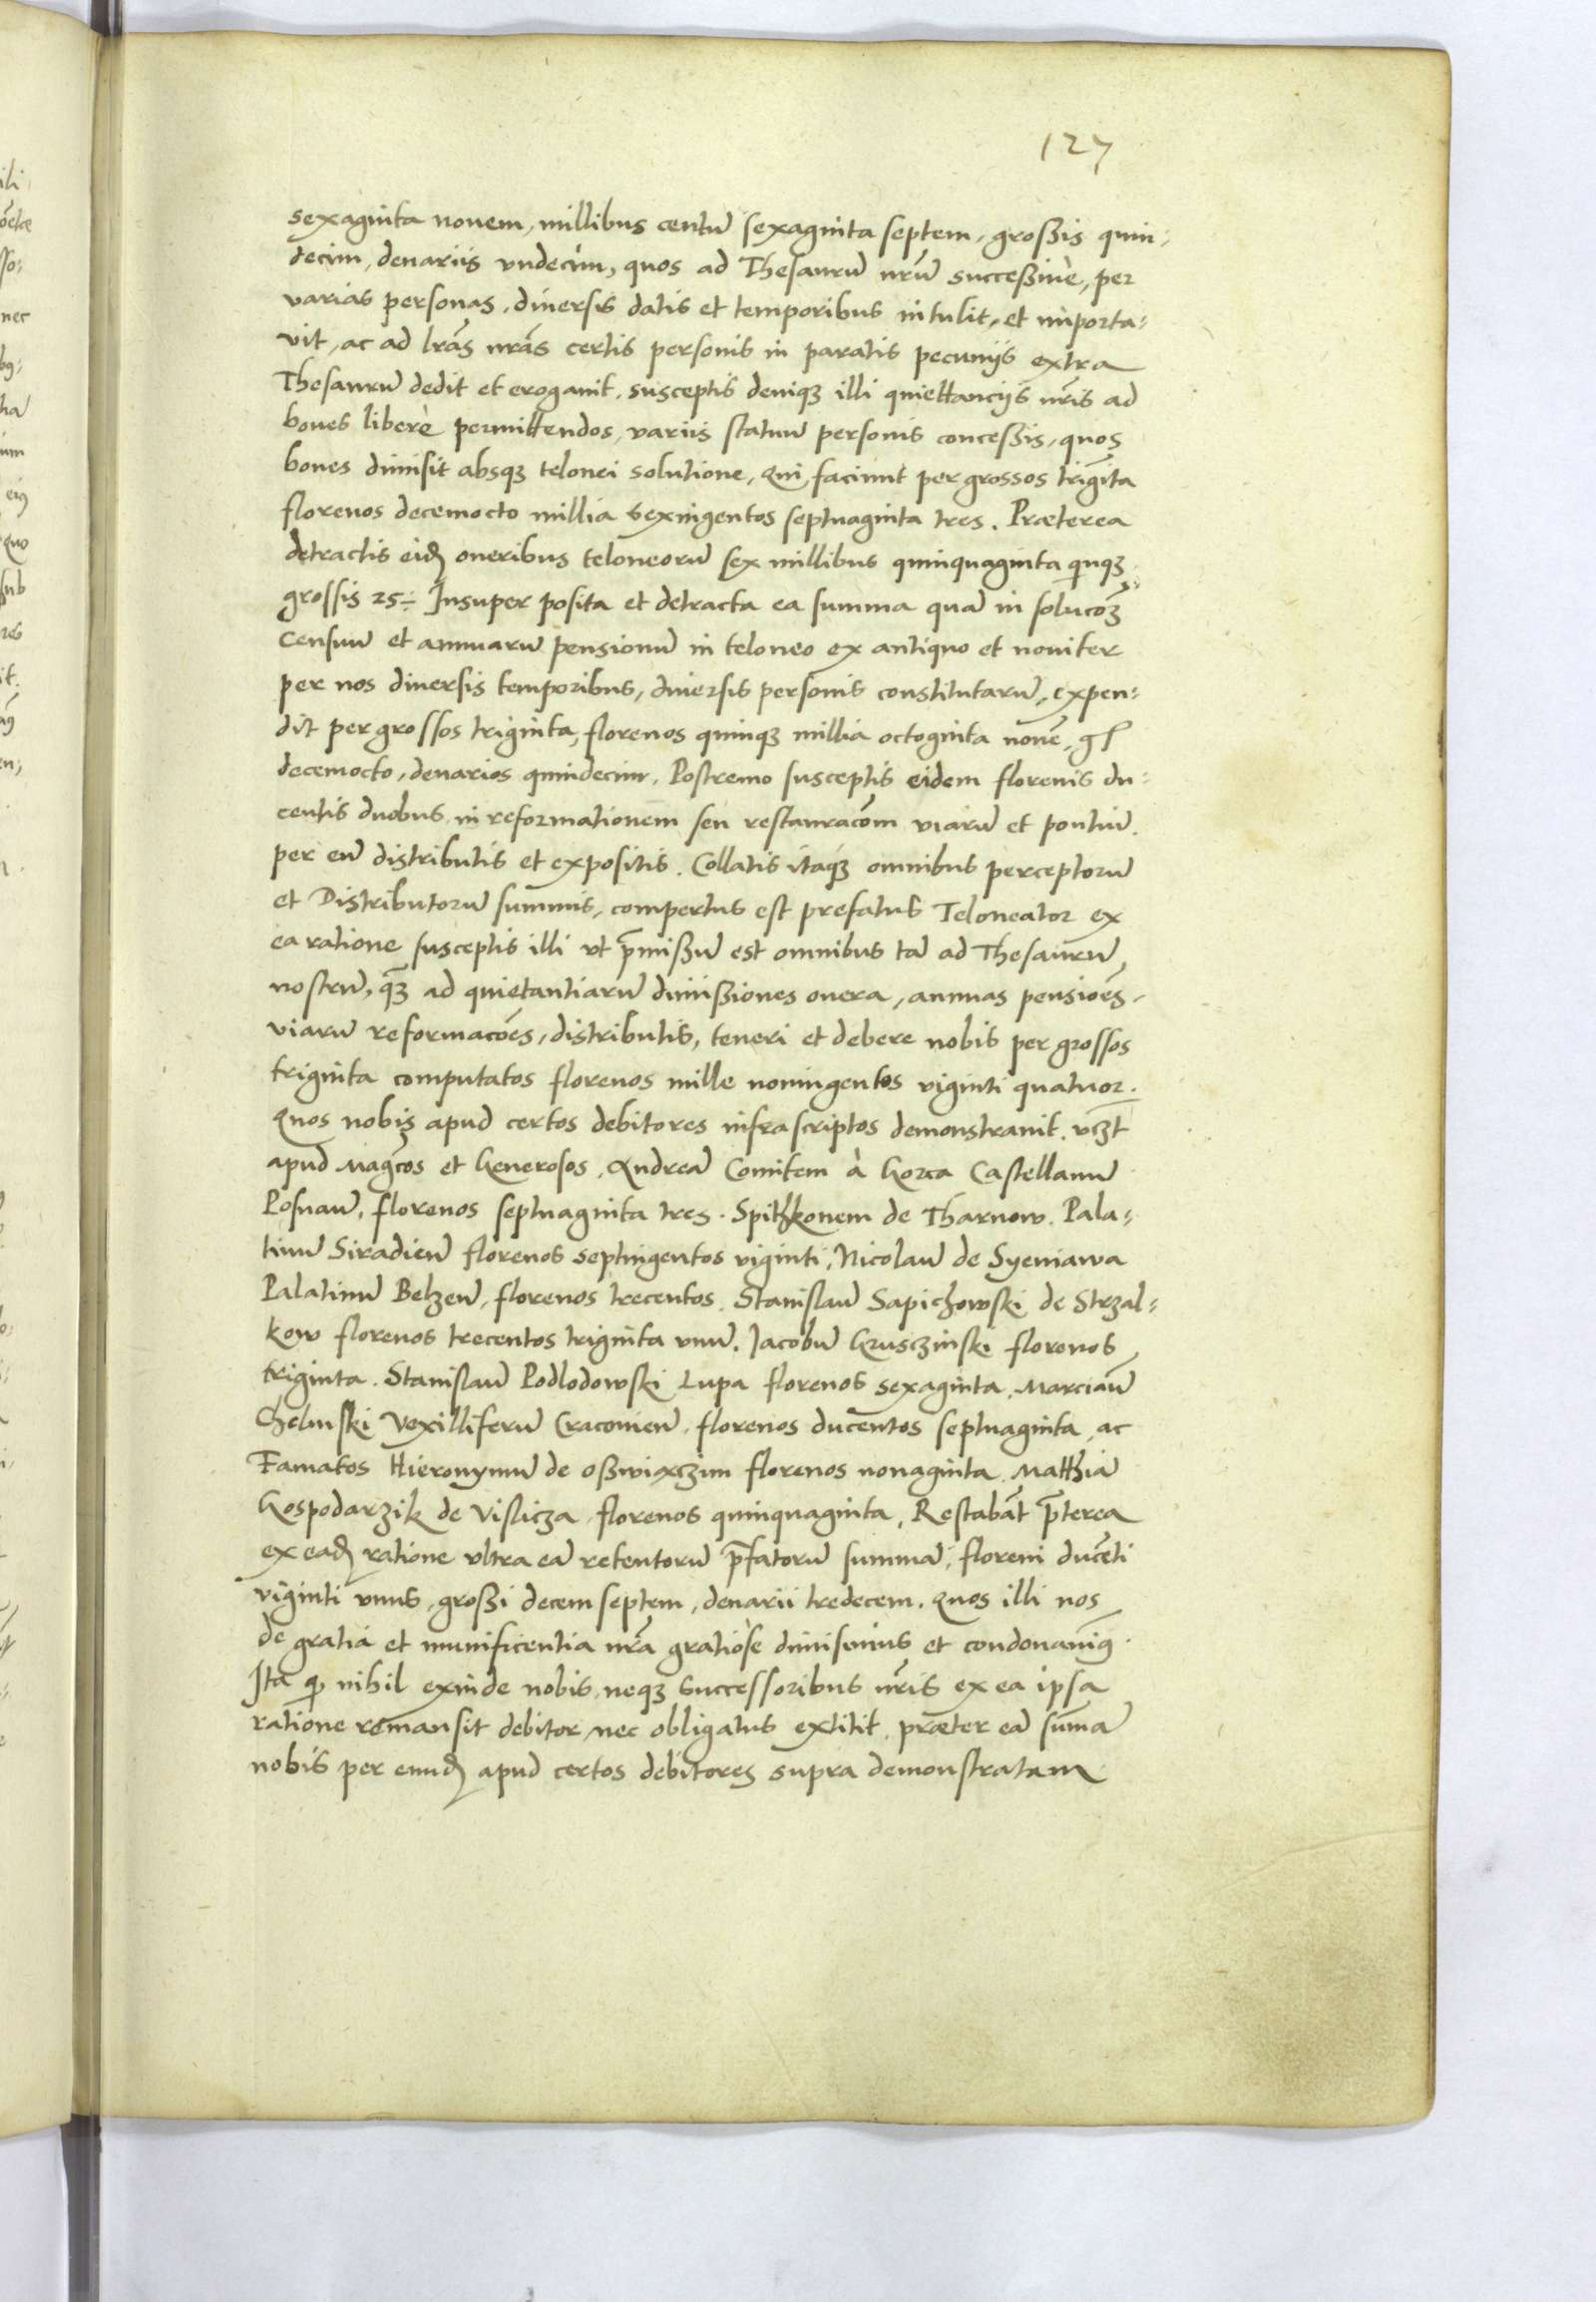 127
sexaginta novem, millibus centũ sexaginta septem, grossis quin-
decim, denariis vndecim, quos ad Thesaurũ nrũ successive, per
varias personas, diversis datis et temporibus intulit, et importa-
vit, ac ad lrãs nrãs certis personis in paratis pecuniis extra
Thesaurũ dedit et erogavit, susceptis deniqȝ illi quiettanciis nrĩs ad
boves libere permittendos, variis statuũ personis concessis, quos
boves dimisit absqȝ telonei solutione, Qui faciunt per grossos trigĩta
florenos decemocto millia sexingentos septuaginta tres. Præterea
detractis eidẽ oneribus teloneorũ sex millibus quinquaginta qinqȝ
grossis 25. Insuper posita et detracta ea summa quã in solucõȝ
censuũ et annuarũ pensionũ in teloneo ex antiquo et noviter
per nos diversis temporibus, diversis personis constitutarũ, expen-
dit per grossos triginta, florenos quinqȝ millia octoginta novẽ, gſ
decemocto, denarios quindecim. Postremo susceptis eidem florenis du-
centis duobus in reformationem seu restauracõm viarũ et pontiũ
per eũ distributis et expositis. Collatis itaqȝ omnibus perceptorũ
et Distributorũ summis, compertus est prefatus Teloneator ex
ea ratione susceptis illi vt p̃missũ est omnibus tã ad Thesaurũ
nostrũ, qȝ̃ ad quietantiarũ dimissiones onera, annuas pensiões,
viarũ reformacões, distributis, teneri et debere nobis per grossos
triginta computatos florenos mille noningentos viginti quatuor.
Quos nobis apud certos debitores infrascriptos demonstravit, vcȝt
apud Mag̃cos et Generosos, Andreã Comitem à Gorca Castellanũ
Posnañ, florenos septuaginta tres. Spithkonem de Tharnow. Pala-
tinũ Siradieñ florenos septingentos viginti, Nicolaũ de Syeniawa
Palatinũ Belzeñ, florenos trecentos. Stanislaũ Sapichowski de Strzal-
kow florenos trecentos triginta vnũ. Jacobũ Gruszinski florenos
triginta. Stanislaũ Podlodowski Lupa florenos sexaginta. Marcianũ
Chelmski Vexilliferũ Cracovieñ, florenos ducentos septuaginta, ac
Famatos Hieronymũ de Osswiaczim florenos nonaginta. Matthiã
Gospodarzik de Vislicza florenos quinquaginta, Restabãt p̃terea
ex eadẽ ratione vltra eã retentorũ p̃fatorũ summã, floreni ducẽti
viginti vnus, grossi decem septem, denarii tredecem. Quos illi nos
de gratia et munificentia nrã gratiose dimisimus et condonavimꝰ
Ita qꝫ nihil exinde nobis, neqȝ successoribus nrĩs ex ea ipsa
ratione remansit debitor, nec obligatus extitit, præter eã sum̃ã
nobis per eundẽ apud certos debitores supra demonstratam